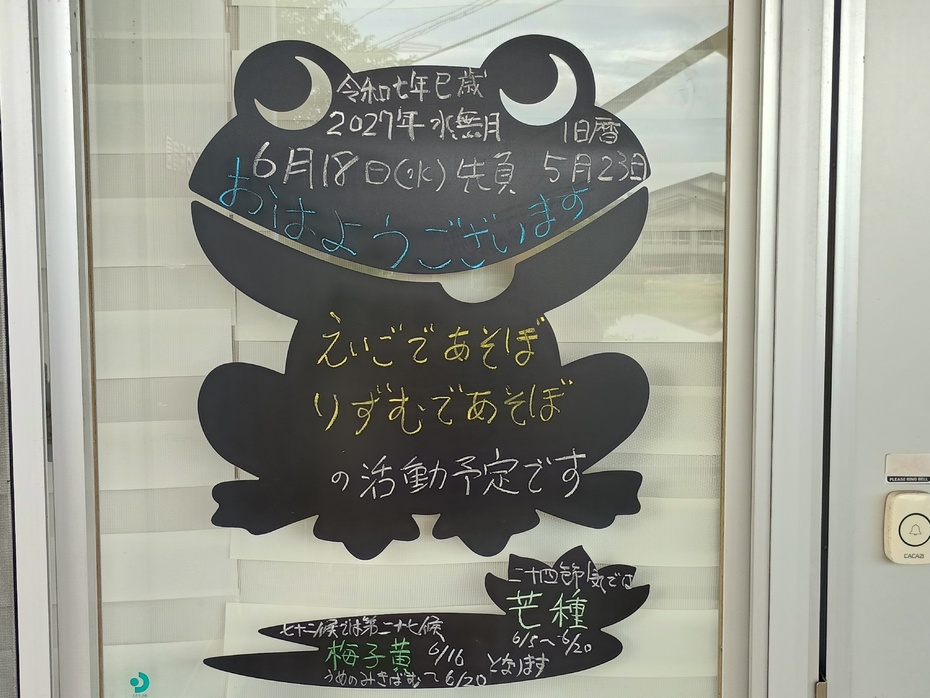 令和七年巳歳
2027年 水無月 旧暦
6月18日(水)先負 5月23日
おはようございます
えいごであそぼ
りずむであそぼ
の活動予定です
二十四節気では
芒種
6/5～6/20
七十二候では第二十七候
梅子黄 6/16
うめのみきばむ～6/20
となります
PLEASE RING BELL
CACAZI